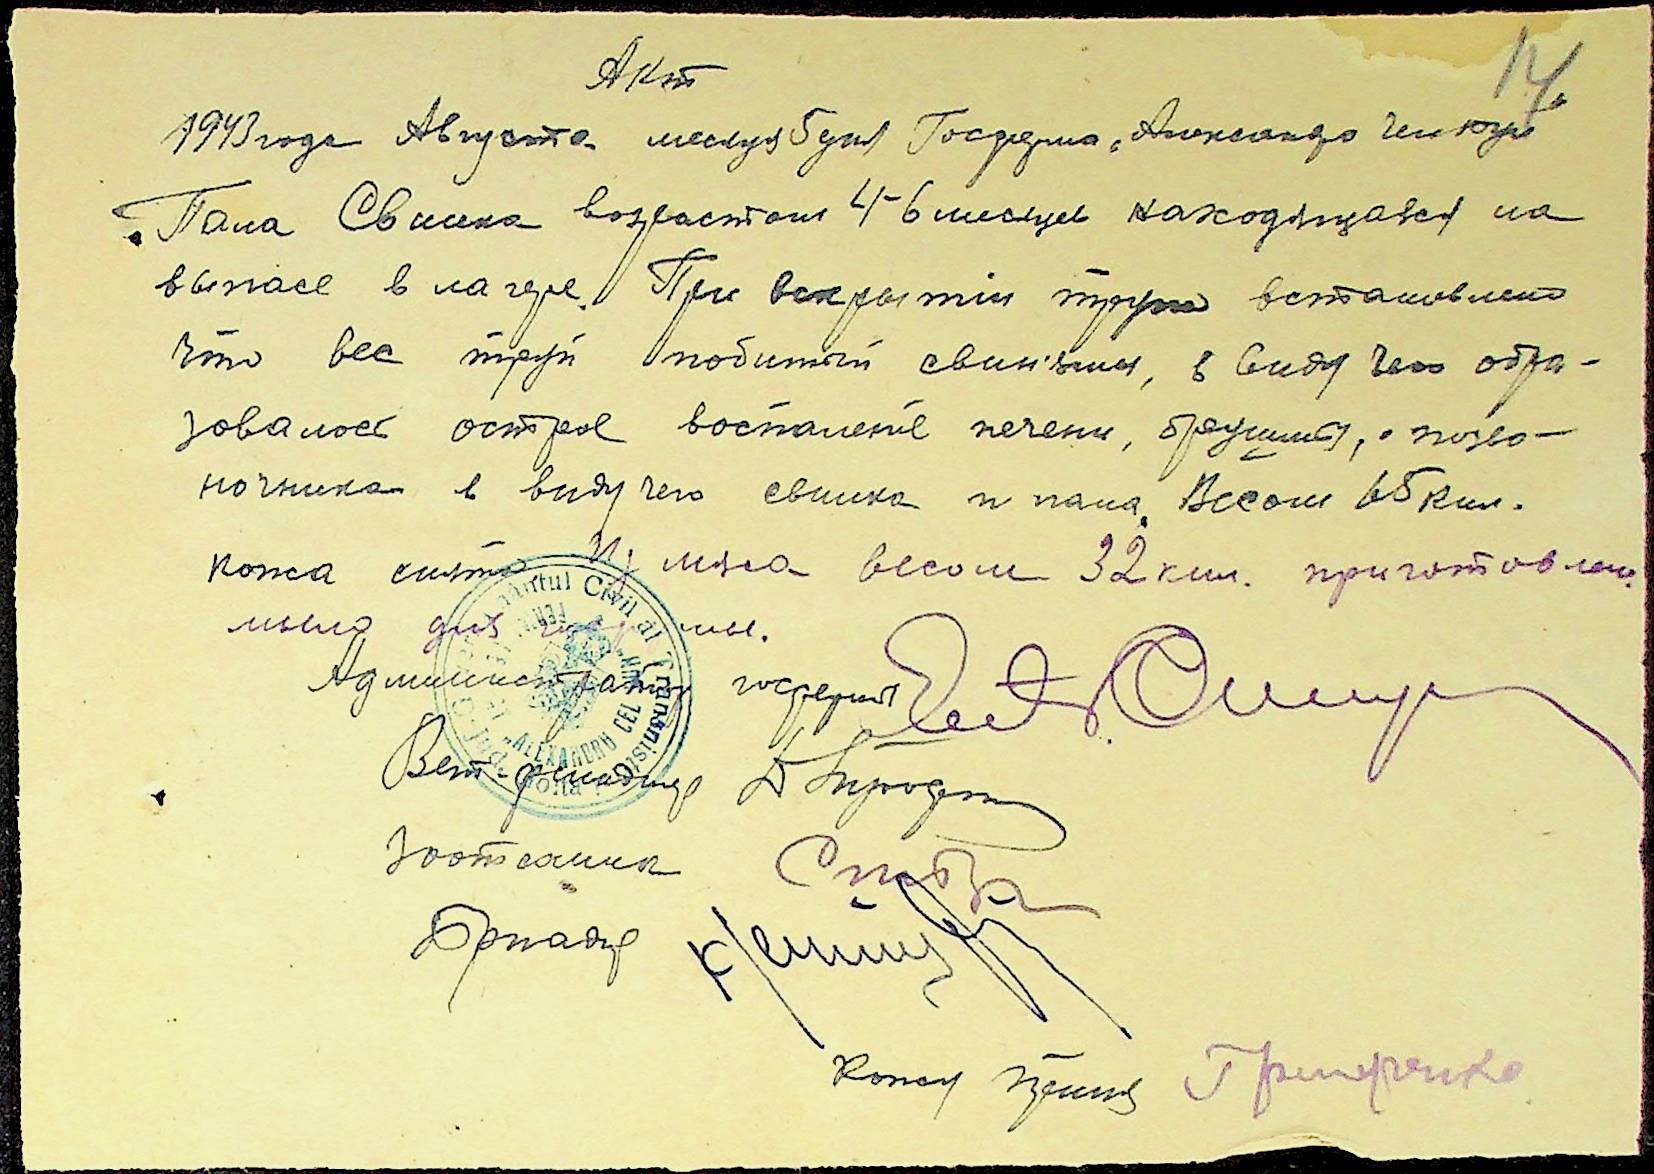 Акт
14
1943 года Августа месяця 5 дня Госферма "Александро Чел Бун"
Пала Свинка возрастом 4-6 месяцев находящаяся на
выпасе в лагере. При вскрытии трупа встановлено
что вес труп побитый свиньями, в виду чего обра-
зовалось острое воспаление печени, брюшины, позво-
ночника в виду чего свинка и пала. Весом 65 кил.
кожа снята Из мяса весом 32 кил. приготовлено
мыло для фермы.
Администратор госфермы
Вет-фельдшер
Зоотехник
Бригадир
Кожу принял Гринченко
Civil al Transnistriei
ALEXANDRU CEL BUN